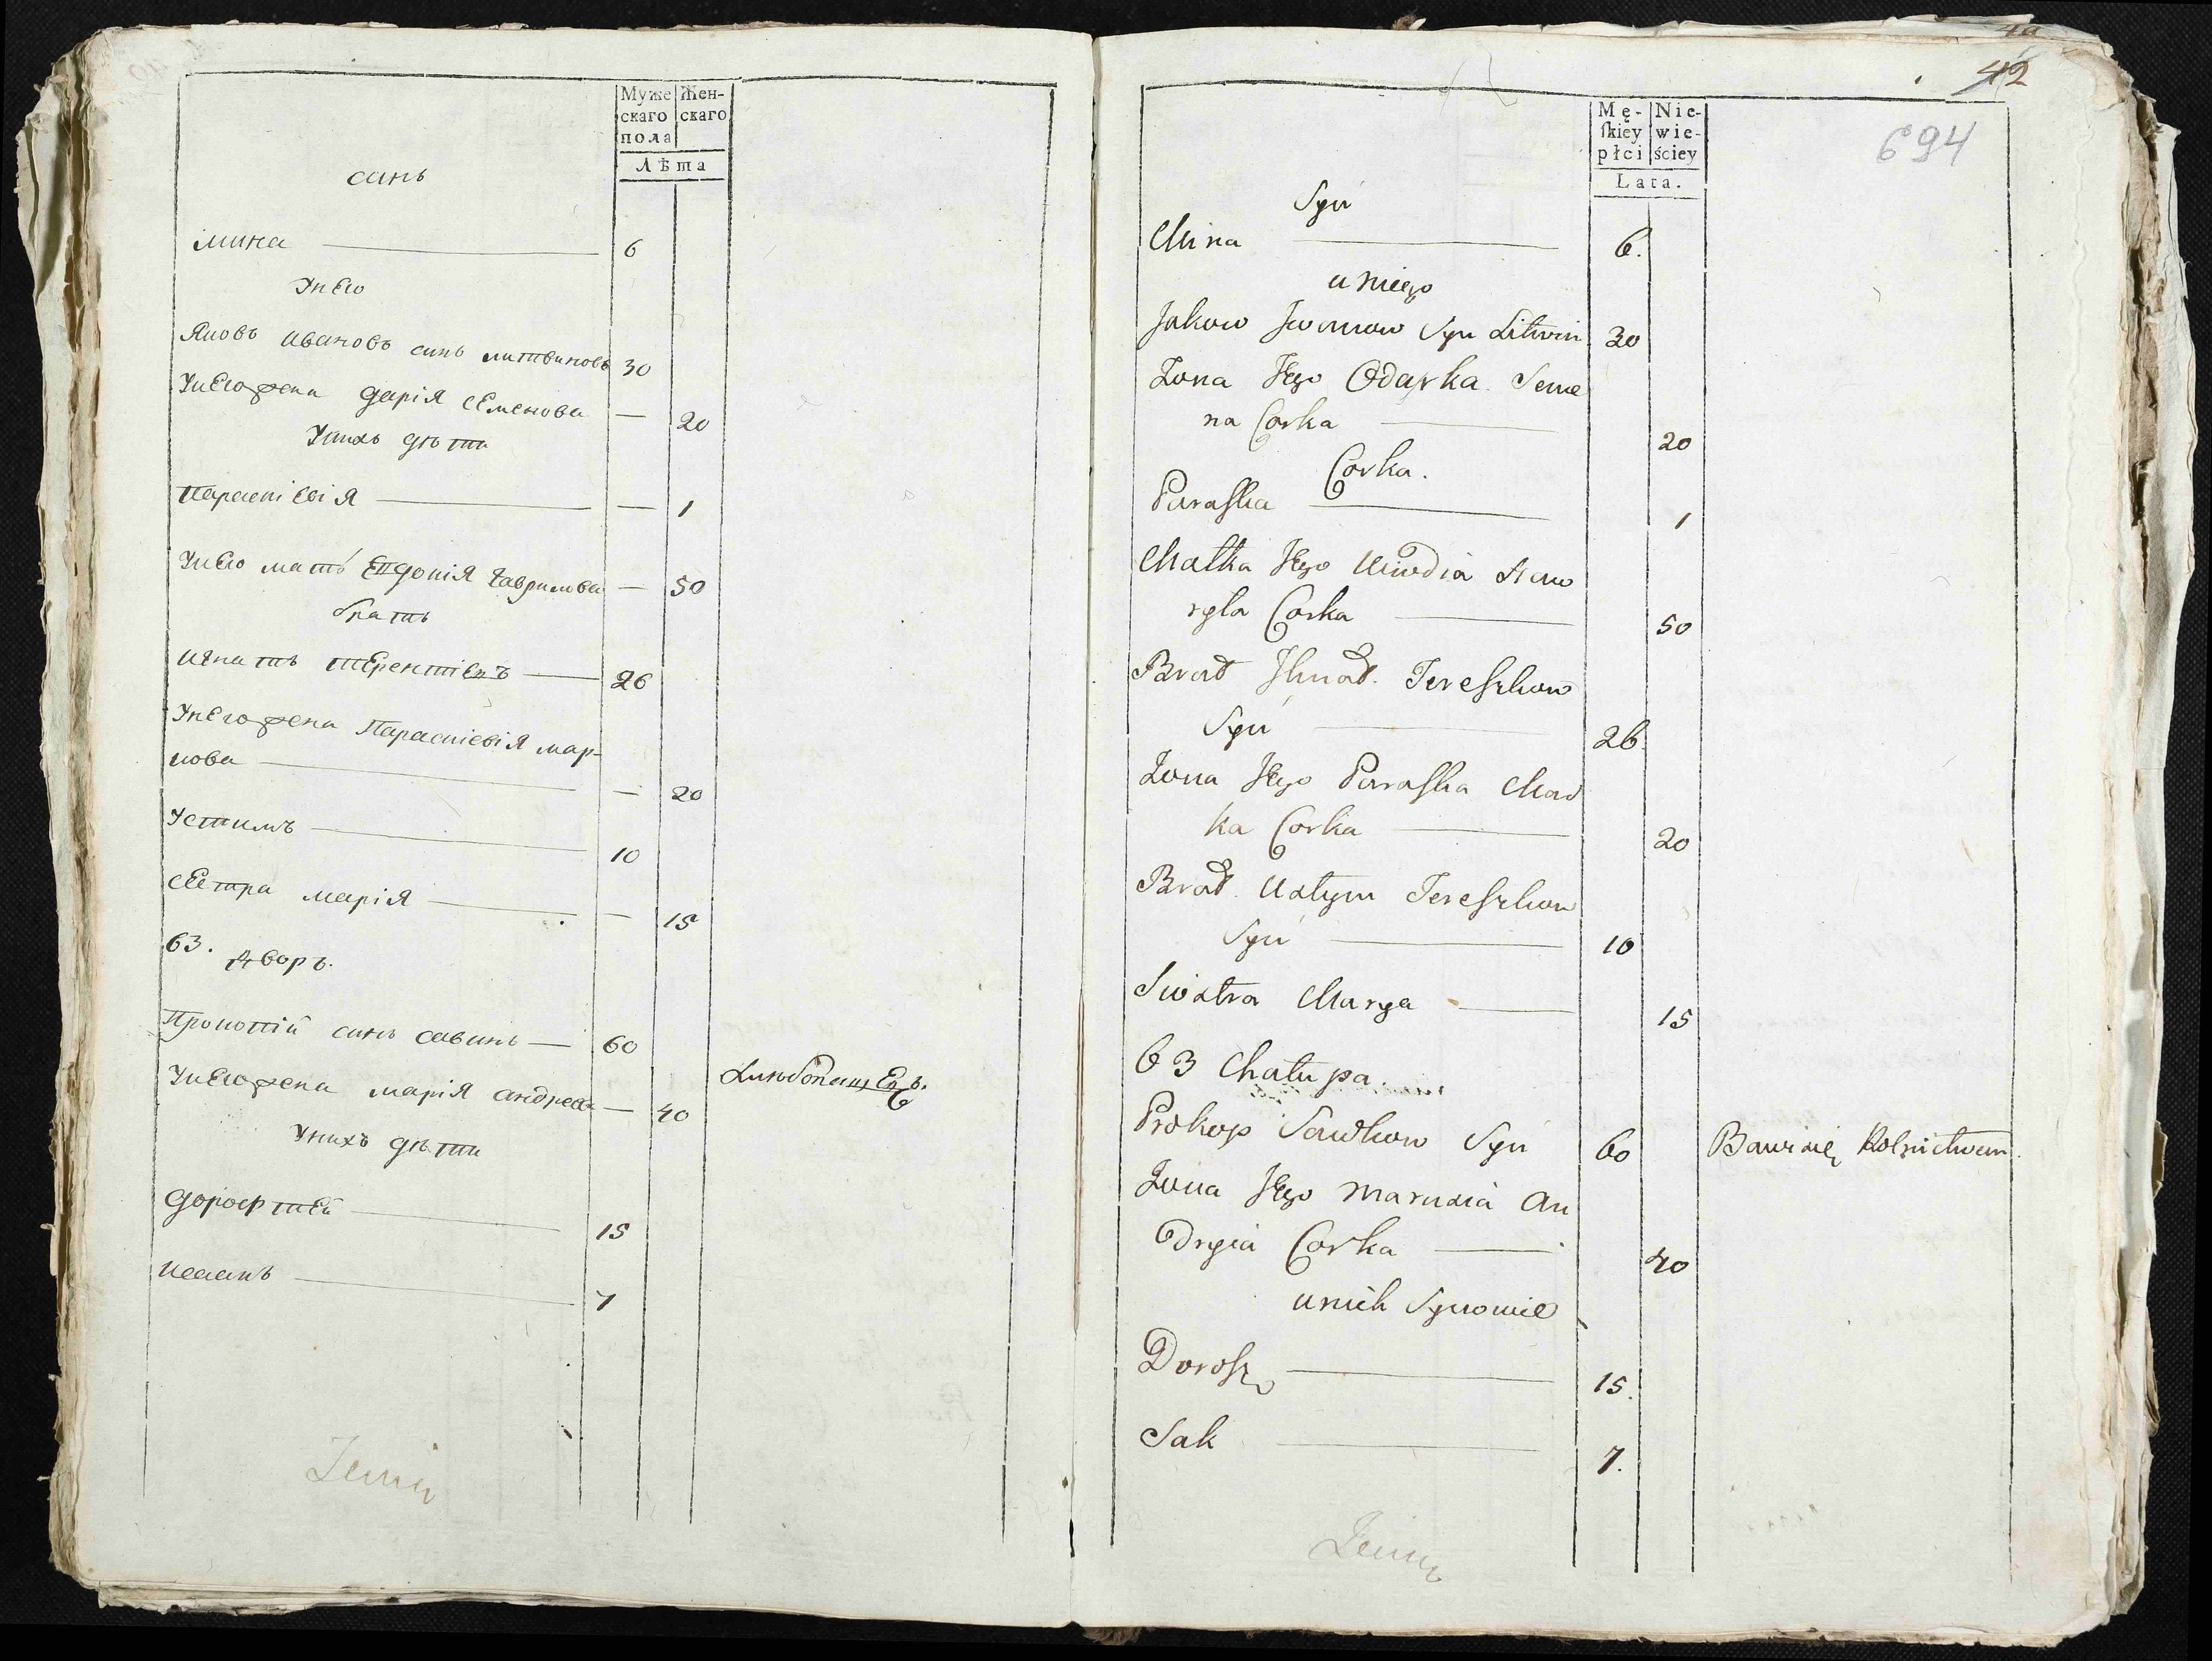 Муже Жен-
скаго скаго
пола
Лѣта
синъ
мина 6
У нєго
Яковъ ивановъ синъ литвиновъ 30
У нєго жена дарія сємєнова — 20
У нихъ дѣти
Параскієвія — 1
У нєго мать Євдокія Гаврилова — 50
братъ
игнатъ тєрентієвъ 26
У нєго жена Параскієвія мар-
кова — 20
Устимъ 10
сєстра марія — 15
63. дворъ.
Прокопій синъ савинъ — 60
У нєго жена марія андреева — 40 хлѣбопашєцъ.
У нихъ дѣти
дорофтєй 15
исаакъ 7
42
694
Mę- Nie-
skiey wie-
płci ściey
Lata.
Syn
Mina 6.
u niego
Jakow Iwanow Syn Litwin 30
Zona Jego Odarka Seme
na Corka 20
Corka.
Paraska 1
Matka Jego Uwdia Haw
ryła Corka 50
Brat Ihnat Tereszkow
Syn 26
Zona Jego Paraska Mar
ka Corka 20
Brat Ustym Tereszkow
Syn 10
Siostra Marya 15
63 Chałupa.
Prokop Sawkow Syn 60 Bawi się Rolnictwem.
Zona Jego Marusia An
dryia Corka 40
u nich Synowie
Dorosz 15.
Sak 7.